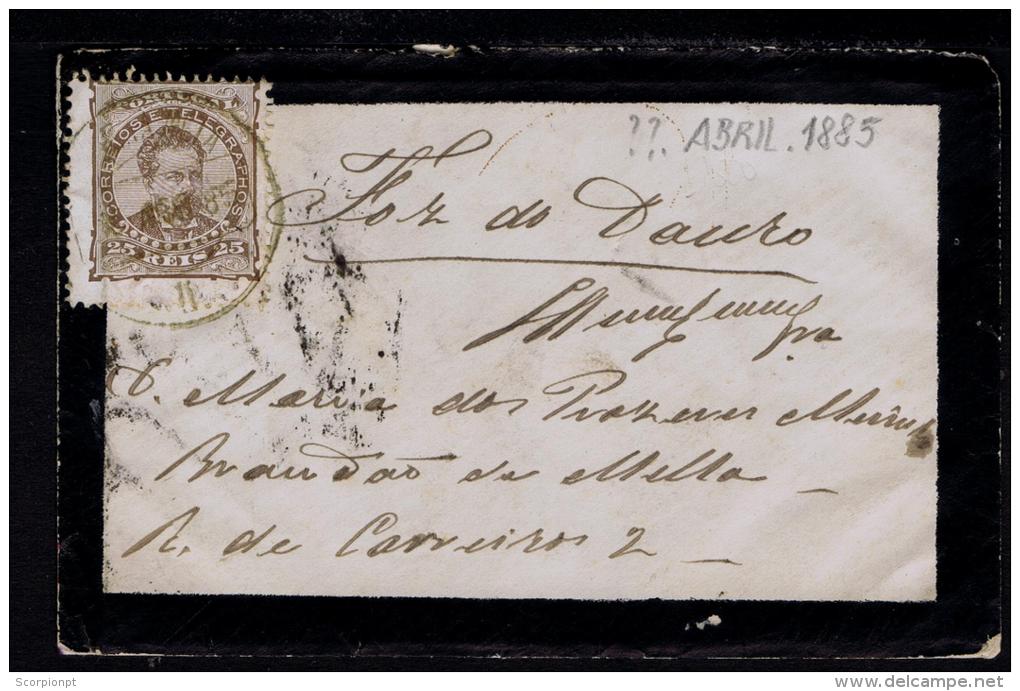 ?? ABRIL. 1885
PORTUGAL
CORREIOS E TELEGRAPHOS
25 REIS 25
Foz do Douro
Illmª e Exmª
Sra
D. Maria dos Prazeres
Brandão de Mello
R. de Carreiros 2
Scorpionpt
www.delcampe.net